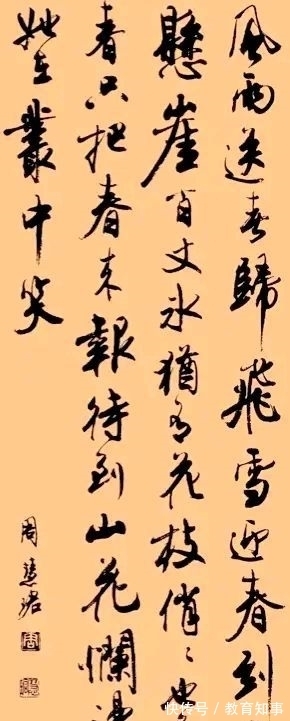 風雨送春歸飛雪迎春到
懸崖百丈冰猶有花枝俏〻也
春只把春來報待到山花爛漫
她在叢中笑
周慧珺
周
快传号 / 教育知事